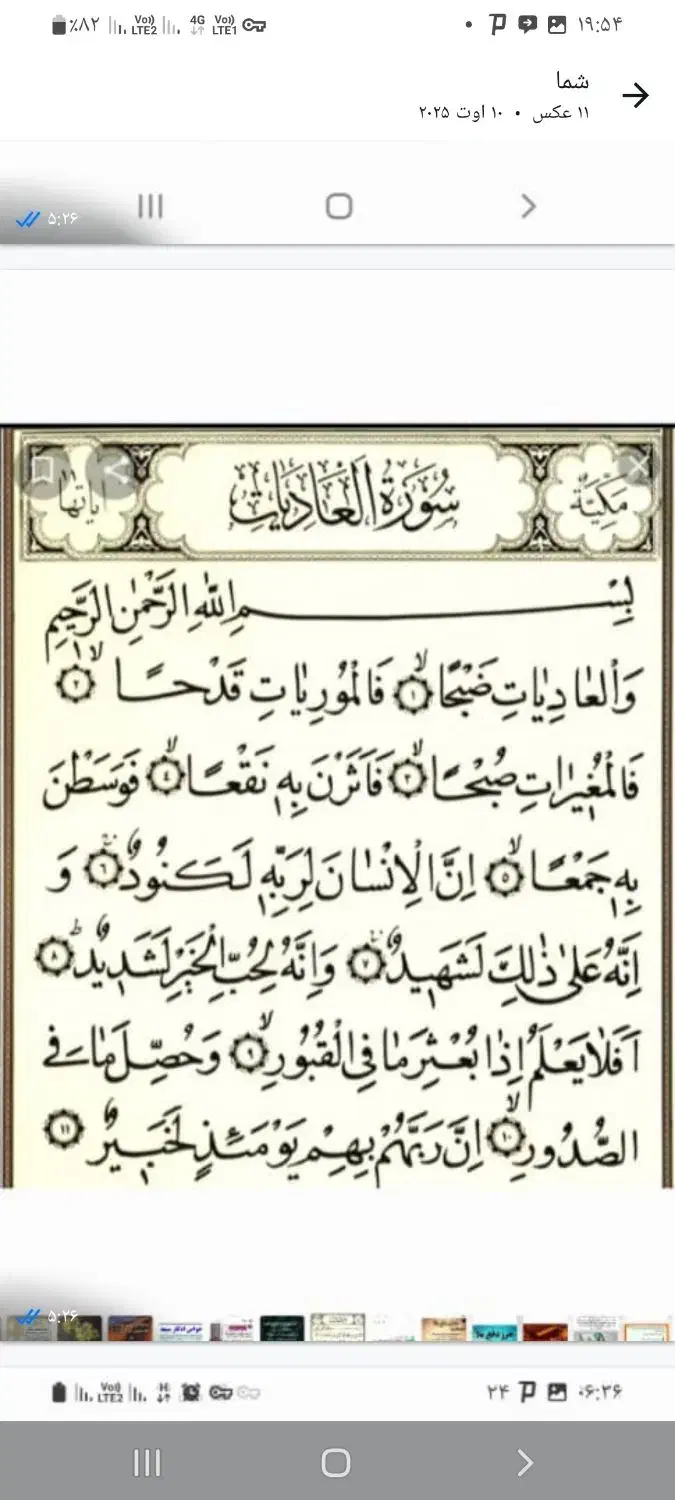 ٪۸۲ Vo) LTE2 4G Vo) LTE1 ۱۹:۵۴
شما
۱۱ عکس • ۱۰ اوت ۲۰۲۵
۵:۲۶
مَكِّيَّة سُورَةُ الْعَادِيَاتِ اٰيَاتُهَا
بِسْمِ اللّٰهِ الرَّحْمٰنِ الرَّحٖيمِ
وَالْعَادِيَاتِ ضَبْحًاۙ ﴿١﴾ فَالْمُورِيَاتِ قَدْحًاۙ ﴿٢﴾
فَالْمُغٖيرَاتِ صُبْحًاۙ ﴿٣﴾ فَاَثَرْنَ بِهٖ نَقْعًاۙ ﴿٤﴾ فَوَسَطْنَ
بِهٖ جَمْعًاۙ ﴿٥﴾ اِنَّ الْاِنْسَانَ لِرَبِّهٖ لَكَنُودٌۚ ﴿٦﴾ وَ
اِنَّهُ عَلٰى ذٰلِكَ لَشَهٖيدٌۚ ﴿٧﴾ وَاِنَّهُ لِحُبِّ الْخَيْرِ لَشَدٖيدٌؕ ﴿٨﴾
اَفَلَا يَعْلَمُ اِذَا بُعْثِرَ مَا فِي الْقُبُورِۙ ﴿٩﴾ وَحُصِّلَ مَا فِي
الصُّدُورِۙ ﴿١٠﴾ اِنَّ رَبَّهُمْ بِهِمْ يَوْمَئِذٍ لَخَبٖيرٌ ﴿١١﴾
۵:۲۶
Vo) LTE2 H ۲۴ ۰۶:۲۶